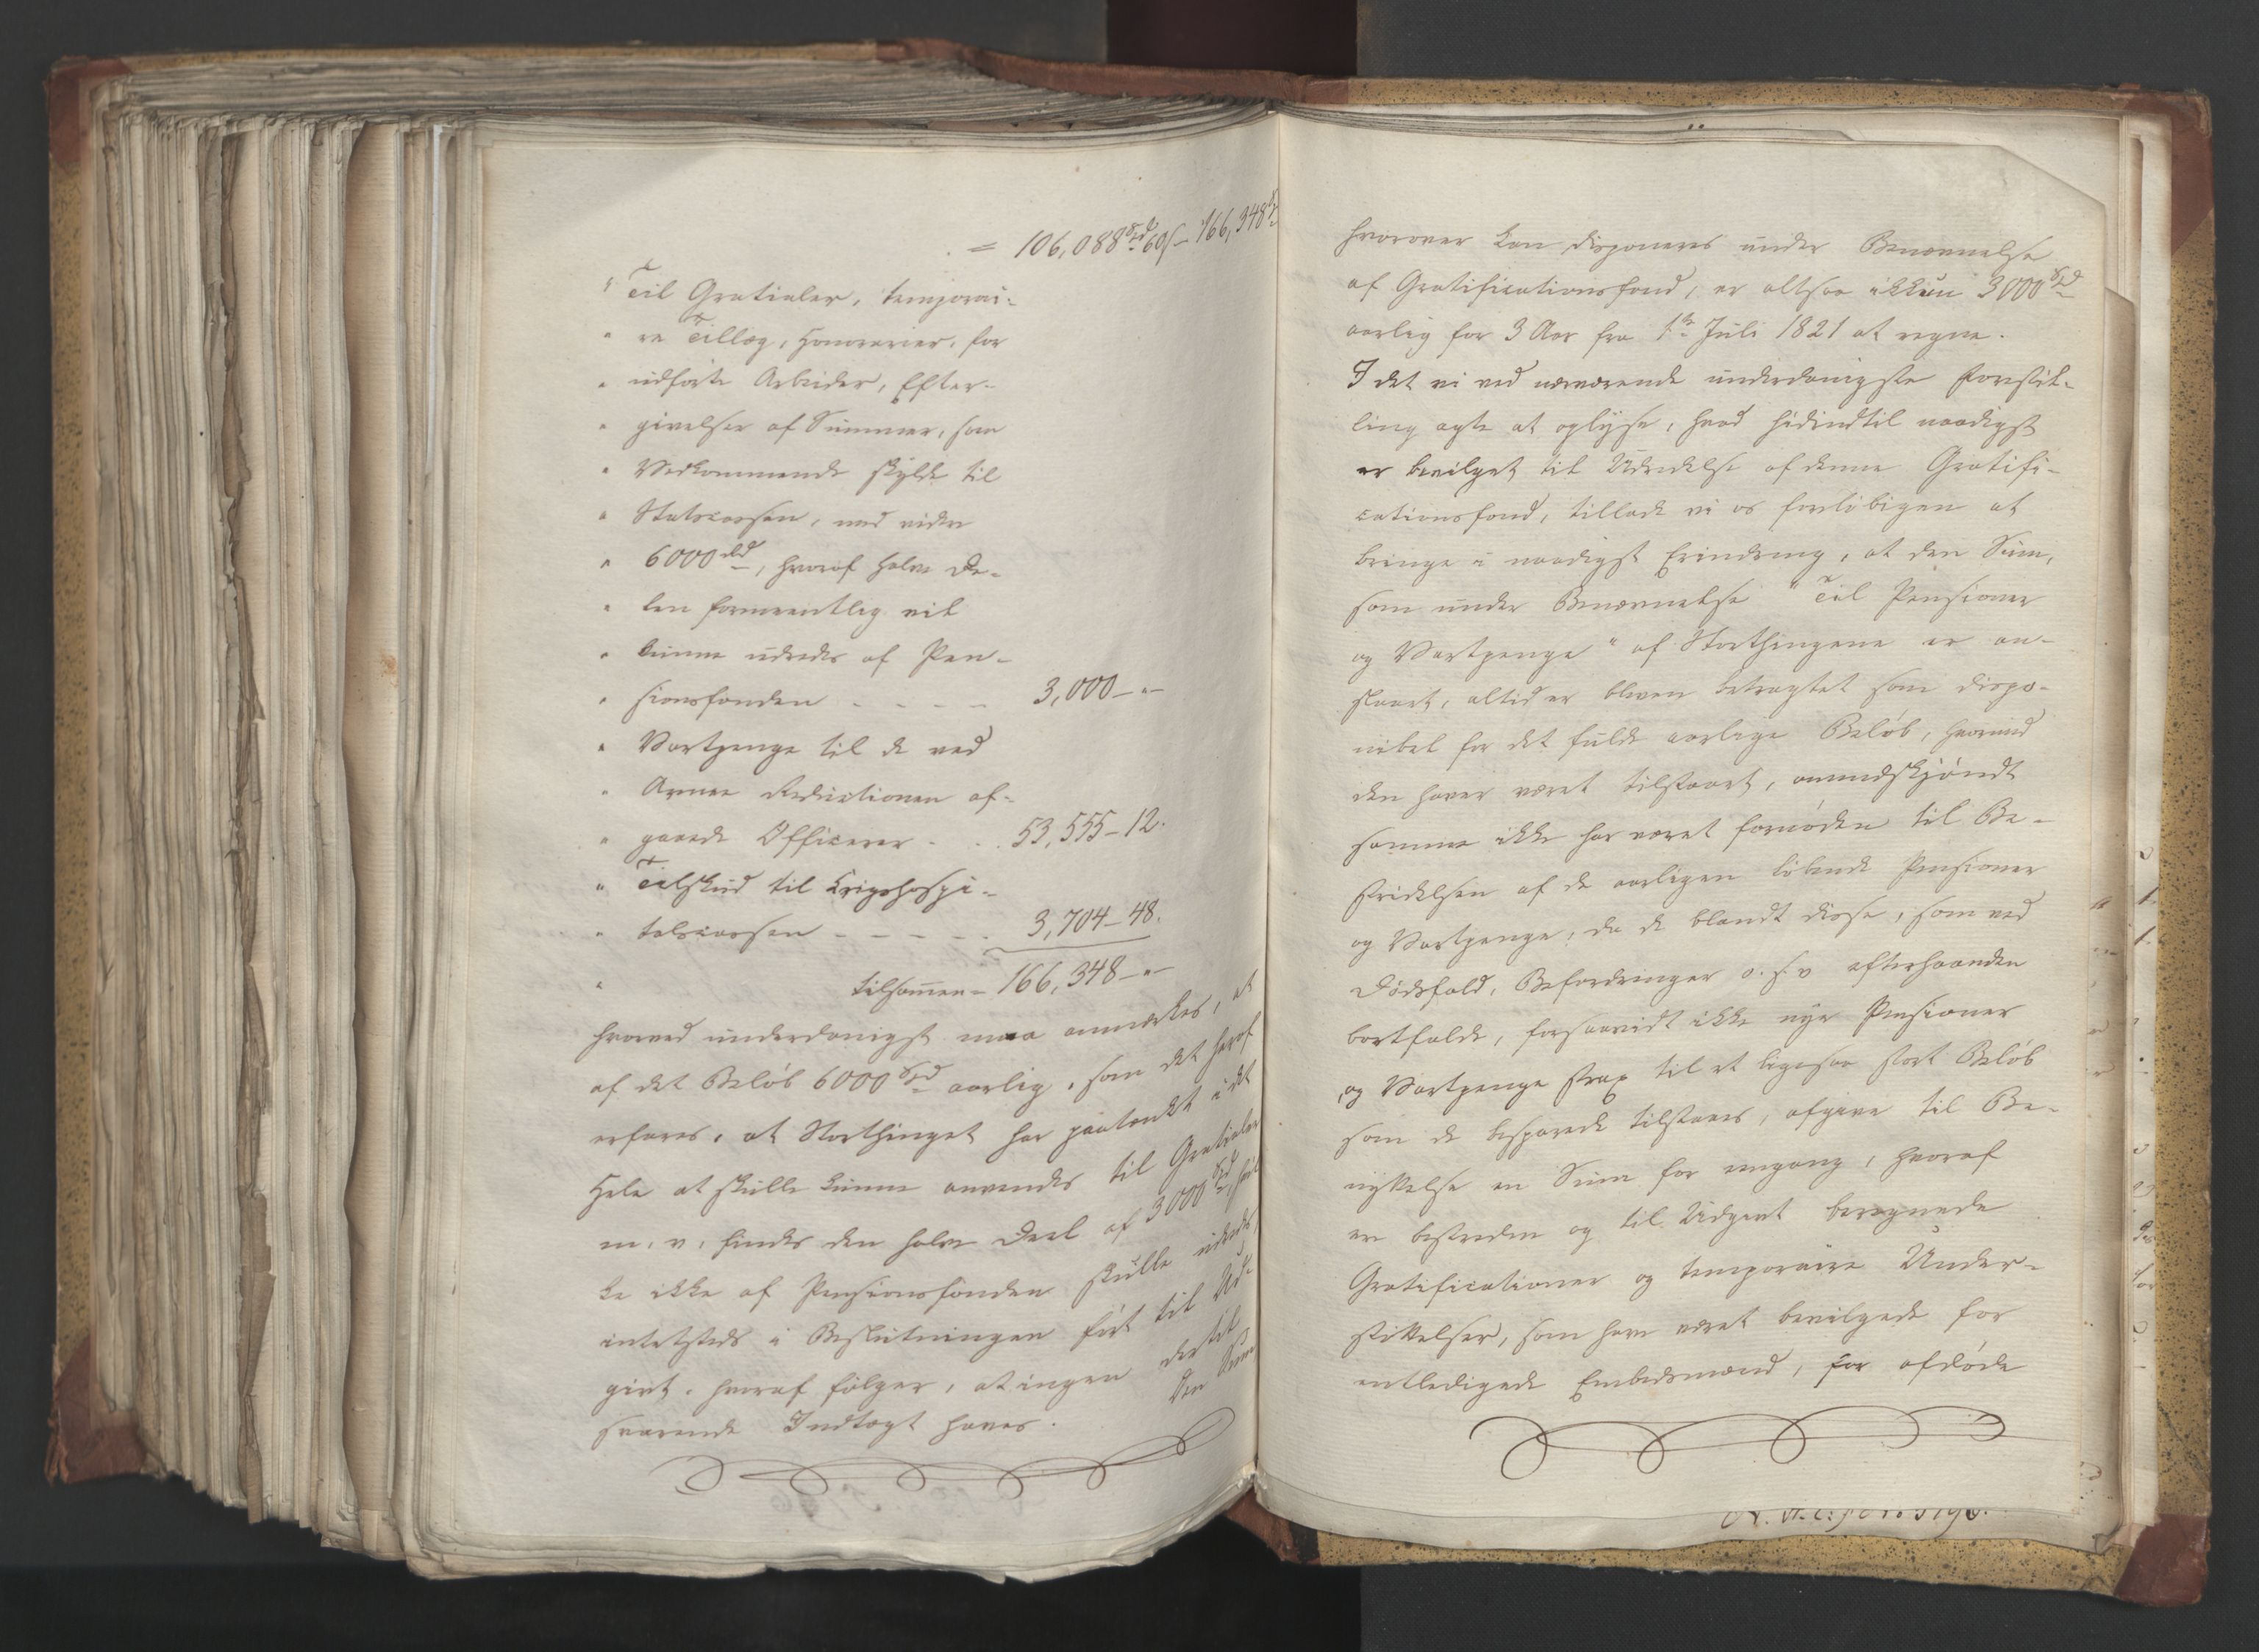 = 106,088 Spd 60 ſ – 166,348 Spd
" Til Gratialer, temporai-
" re Tillæg, Honorarier, for
" udførte Arbeider, Efter-
" givelser af Summer, som
" Vedkommende skylde til
" Statscassen, med videre
" 6000 Spd, hvoraf halve De-
" len formeentlig vil
" kunne udredes af Pen-
" sionsfonden - - - - 3,000 – " –
" Vartpenge til de ved
" Armee Reductionen af-
" gaaede Officerer - . . 53,555 – 12.
" Tilskud til Krigshospi-
" talscassen - - - - - 3,704 – 48.
" tilsammen = 166,348 – " –
hvorved underdanigst maa anmærkes, at
af det Beløb 6000 Spd aarlig, som det heraf
erfares, at Storthinget har paatænkt i det
Hele at skulle kunne anvendes til Gratialer
m. v. findes den halve Deel af 3000 Spd, hvil
ke ikke af Pensionsfonden skulle udredes,
intetsteds i Beslutningen ført til Ud-
givt, hvoraf følger, at ingen dertil
svarende Indtægt haves. Den Sum
hvorover kan disponeres under Benævnelse
af Gratificationsfond, er altsaa ikkun 3000 Spd
aarlig for 3 Aar fra 1ste Juli 1821 at regne.
I det vi ved nærværende underdanigste Forestil-
ling agte at oplyse, hvad hidindtil naadigst
er bevilget til Udredelse af denne Gratifi-
cationsfond, tillade vi os forløbigen at
bringe i naadigst Erindring, at den Sum,
som under Benævnelse "Til Pensioner
og Vartpenge" af Storthingene er an-
slaaet, altid er bleven betragtet som dispo-
nibel for det fulde aarlige Beløb, hvormed
den haver været tilstaaet, omendskjøndt
samme ikke har været fornøden til Be-
stridelsen af de aarligen løbende Pensioner
og Vartpenge, da de blandt disse, som ved
Dødsfald, Befordringer o. s. v. efterhaanden
bortfalde, forsaavidt ikke nye Pensioner
og Vartpenge strax til et ligesaa stort Beløb
som de besparede tilstaaes, afgive til Be-
nyttelse en Sum for engang, hvoraf
ere bestredne og til Udgivt beregnede
Gratificationer og temporaire Under-
støttelser, som have været bevilgede for
entledigede Embedsmænd, for afdøde